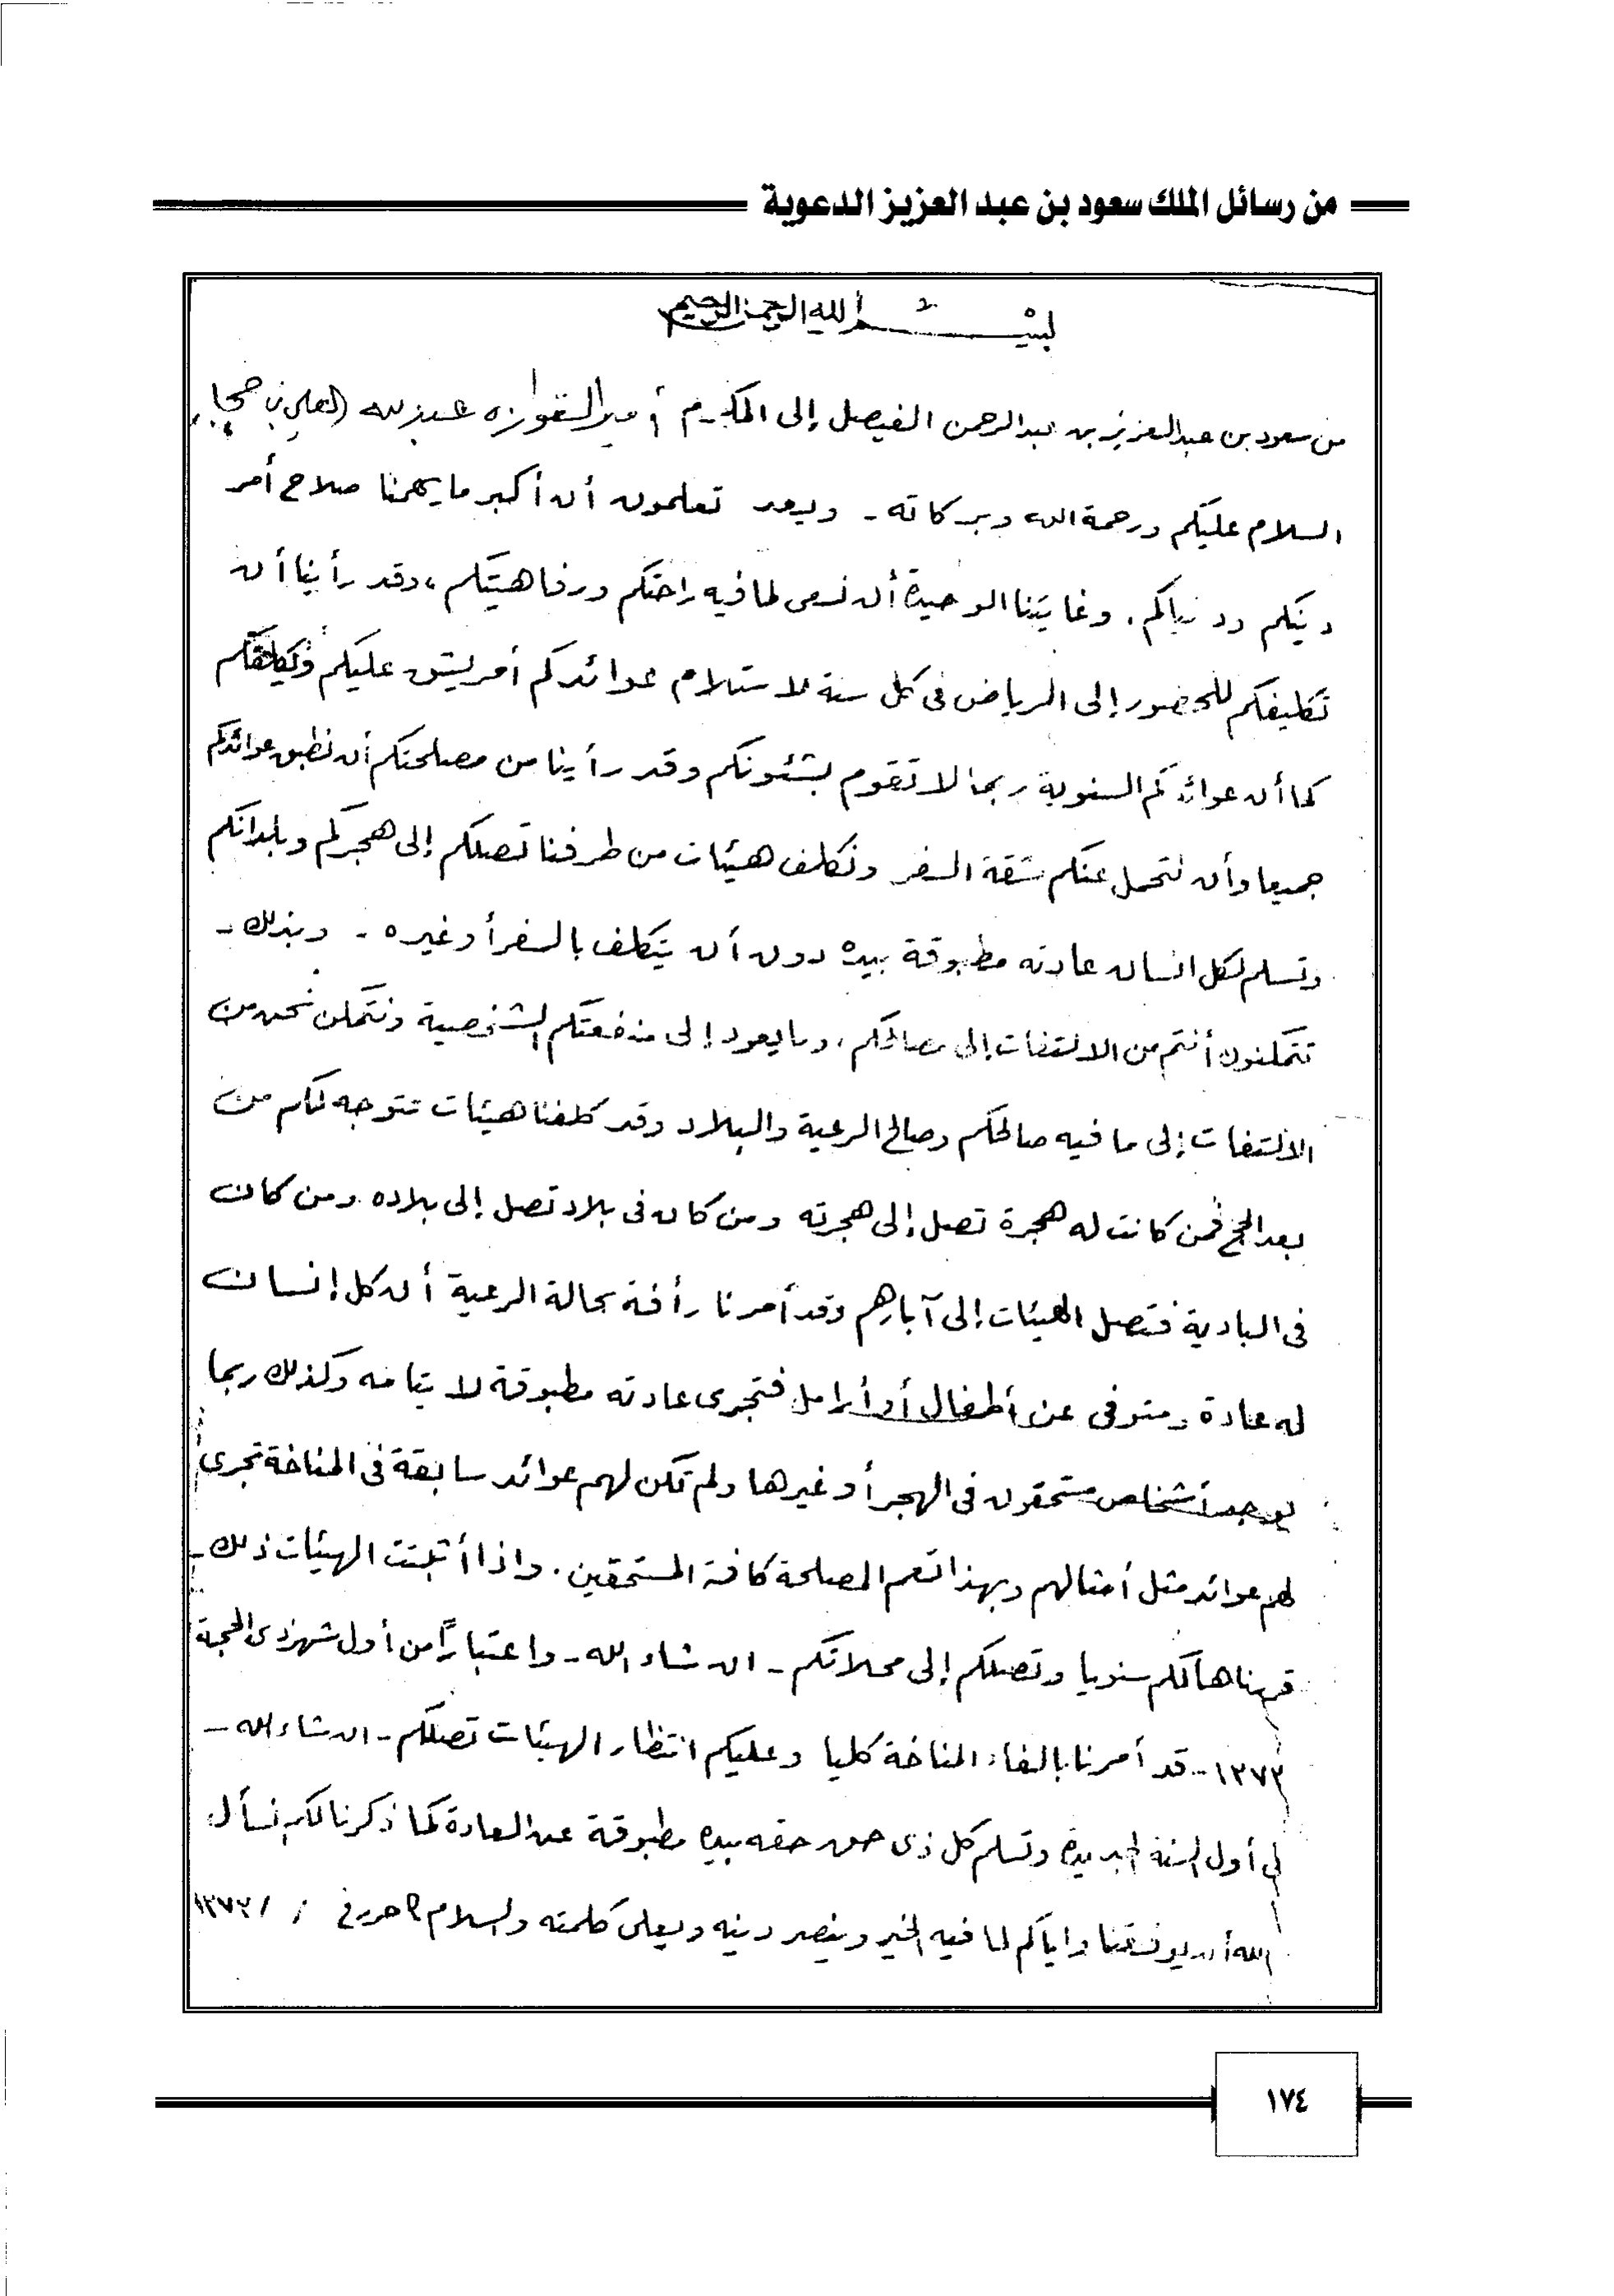 من رسائل الملك سعود بن عبد العزيز الدعوية
بسم الله الرحمن الرحيم
من سعود بن عبدالعزيز بن عبدالرحمن الفيصل إلى المكرم أمير القوارة عبدالله العلي بن
السلام عليكم ورحمة الله وبركاته - وبعد تعلمون أن أكبر ما يهمنا صلاح أمر
دينكم ودنياكم، وغايتنا الوحيدة أن نسعى لما فيه راحتكم ورفاهيتكم، وقد رأينا أن
تكليفكم للحضور إلى الرياض في كل سنة لاستلام عوائدكم أمر يشق عليكم ويكلفكم
كما أن عوائدكم السنوية ربما لا تقوم بشئونكم وقد رأينا من مصلحتكم أن نطبق عوائدكم
جميعا وأن نتحمل عنكم شقة السفر ونكلف هيئات من طرفنا تصلكم إلى هجركم وبلدانكم
وتسلم لكل انسان عادته مطبوقة بيده دون أن يتكلف بالسفر أو غيره - وبذلك -
تتمكنون أنتم من الالتفات إلى مصالحكم، وما يعود إلى منفعتكم الشخصية ونتمكن نحن من
الالتفات إلى ما فيه صالحكم وصالح الرعية والبلاد وقد كلفنا هيئات تتوجه لكم من
بعد الحج فمن كانت له هجرة تصل إلى هجرته ومن كان في بلاد تصل إلى بلاده ومن كان
في البادية فتصل الهيئات إلى آبارهم وقد أمرنا رأفة بحالة الرعية أن كل إنسان
له عادة ومتوفى عن أطفال أو أرامل فتجرى عادته مطبوقة لايتامه وكذلك ربما
يوجد أشخاص مستحقون في الهجر أو غيرها ولم تكن لهم عوائد سابقة في المناخة تجرى
لهم عوائد مثل أمثالهم وبهذا تعم المصلحة كافة المستحقين. واذا أثبتت الهيئات ذلك -
قررناها لكم سنويا وتصلكم إلى محلاتكم - ان شاء الله - واعتباراً من أول شهر ذى الحجة
١٣٧٣ - قد أمرنا بالغاء المناخة كليا وعليكم انتظار الهيئات تصلكم - ان شاء الله -
في أول السنة الجديدة وتسلم كل ذى حق حقه بيده مطبوقة عن العادة كما ذكرنا لكم نسأل
الله أن يوفقنا واياكم لما فيه الخير وينصر دينه ويعلى كلمته والسلام حرر في / / ١٣٧٣
١٧٤